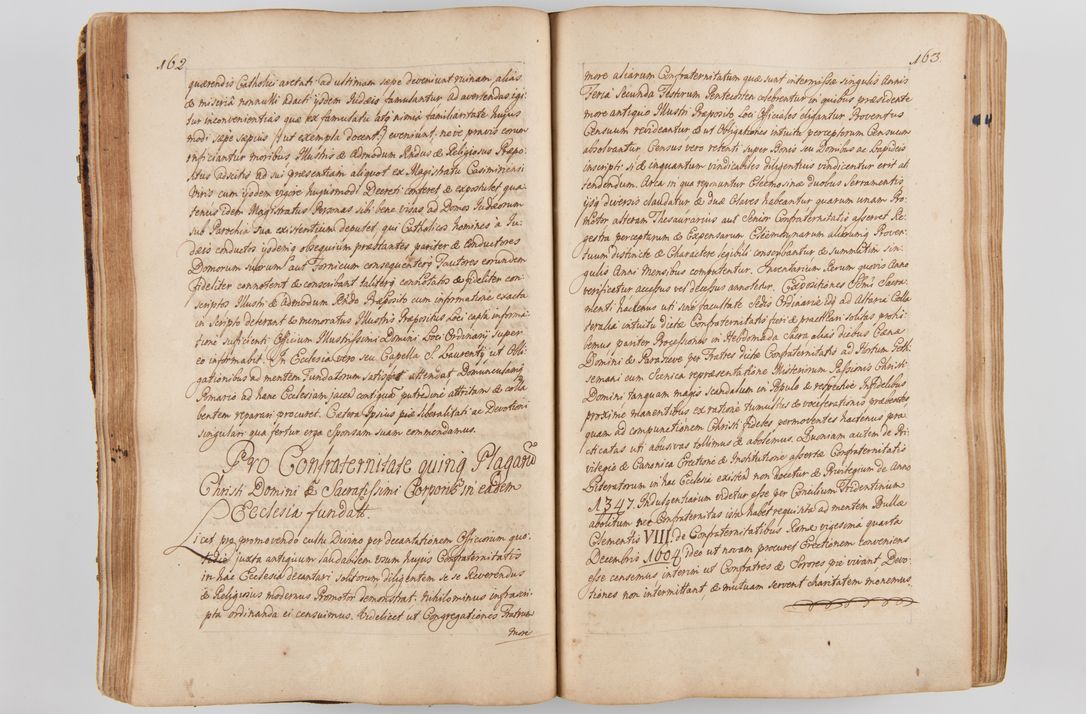 162
quærendis Catholici arctati ad ultimam sæpe deveniunt ruinam, alias
& miseria nonnulli adacti ijsdem Judæis famulantur ad avertendas igi-
tur inconvenientias quæ ex famulatu isto nimia familiaritate hujus
modi sæpe sæpius /: ut exempla docent :/ eveniunt, neve pravis eorum
inficiantur moribus, Illustris & Admodum Rndus & Religiosus Præpo-
situs adscitis ad sui præsentiam aliquot ex Magistratu Casimiriensi
viris cum ijsdem vigore hujusmodi Decreti conferet & expostulet qua-
tenus idem Magistratus Personas sibi bene visas ad Domos Judæorum
sub Parochia Sua existentium deputet, qui Catholicos homines a Ju-
dæis conductos ijsdemq obsequium præstantes pariter & Conductores
Domorum suorum aut Fornicum consequenterq Fautores eorundem
fideliter connotent & conscribant taliterq connotatos & fideliter con-
scriptos Illustri & Admodum Rndo Præposito cum informatione exacta
in Scripto deferant & memoratus Illustris Præpositus Loci capta informa-
tione sufficienti Officium Illustrissimi Domini Loci Ordinarij super
eo informabit. In Ecclesia vero seu Capella S. Laurentij ut Obli-
gationibus ad mentem Fundatorum satisfiat attendat Domunculamq
Pomario ad hanc Ecclesiam jacenti contiguam putredine attritam & colla-
bentem reparari procuret. Cætera Ipsius piæ liberalitati ac Devotioni
singulari qua fertur erga Sponsam suam commendamus.
Pro Confraternitate quinq Plagarū
Christi Domini & Sacratissimi Corporis in eadem
Ecclesia fundatt.
Licet pro promovendo cultu Divino per decantationem Officiorum quo-
tidie juxta antiquum laudabilem usum hujus Confraternitatis
in hac Ecclesia decantari solitorum diligentem se se Reverendus
& Religiosus modernus Promotor demonstrat, nihilominus infrascri-
pta ordinanda ei censuimus. Videlicet ut Congregationes Fratrum
more
163
more aliarum Confraternitatum quæ sunt intermissæ singulis Annis
Feria Secunda Festorum Pentecosten celebrentur in quibus præsidente
more antiquo Illustri Præposito Loci Officiales eligantur Proventus
Censuum revideantur & ut Obligationes intuitu perceptorum Censuum
absolvantur. Census vero retenti super Bonis seu Domibus ac Lapideis
inscripti si & inquantum vindicabiles diligentius vindicentur erit at-
tendendum. Arca in qua reponuntur Eleemosinæ duobus Serramentis
ijsq diversis claudatur & duæ Claves habeantur quarum unam Pro-
motor alteram Thesaurarius aut Senior Confraternitatis asservet Re-
gestra perceptarum & Expensarum Eleemosynarum aliorumq Proven-
tuum distincte & Charactere legibili conscribantur & summatim sin-
gulis Anni Mensibus computentur. Inventarium Rerum quovis Anno
verificetur accessus vel decessus annotetur. Expositiones Ssmi Sacra-
menti hactenus uti sine facultate Sedis Ordinariæ ad Altaria Colla-
teralia intuitu dictæ Confraternitatis fieri & practicari solitas prohi-
bemus pariter Processiones in Hebdomada Sacra alias diebus Cænæ
Domini & Parasceve per Fratres dictæ Confraternitatis ad Hortum Geth-
semani cum Scenica repræsentatione Misteriorum Passionis Christi
Domini tanquam magis scandalum in Populo & respective Infidelibus
proxime manentibus ex ratione tumultus & vociferationis præbentes
quam ad compunctionem Christi fideles permoventes hactenus pra-
cticatas uti abusivas tollimus & abolemus. Quoniam autem de Pri-
vilegio & Canonica Erectione & Institutione assertæ Confraternitatis
Literatorum in hac Ecclesia existen non docetur & Privilegium de Anno
1347. Indulgentiarum videtur esse per Concilium Tridentinum
abolitum nec Confraternitas ista habet requisita ad mentem Bullæ
Clementis VIII. de Confraternitatibus Romæ vigesima quarta
Decembris 1604 ideo ut novam procuret Erectionem conveniens
esse censemus interim ut Confratres & Sorores pie vivant Devo-
tiones non intermittant, & mutuam servent charitatem monemus.